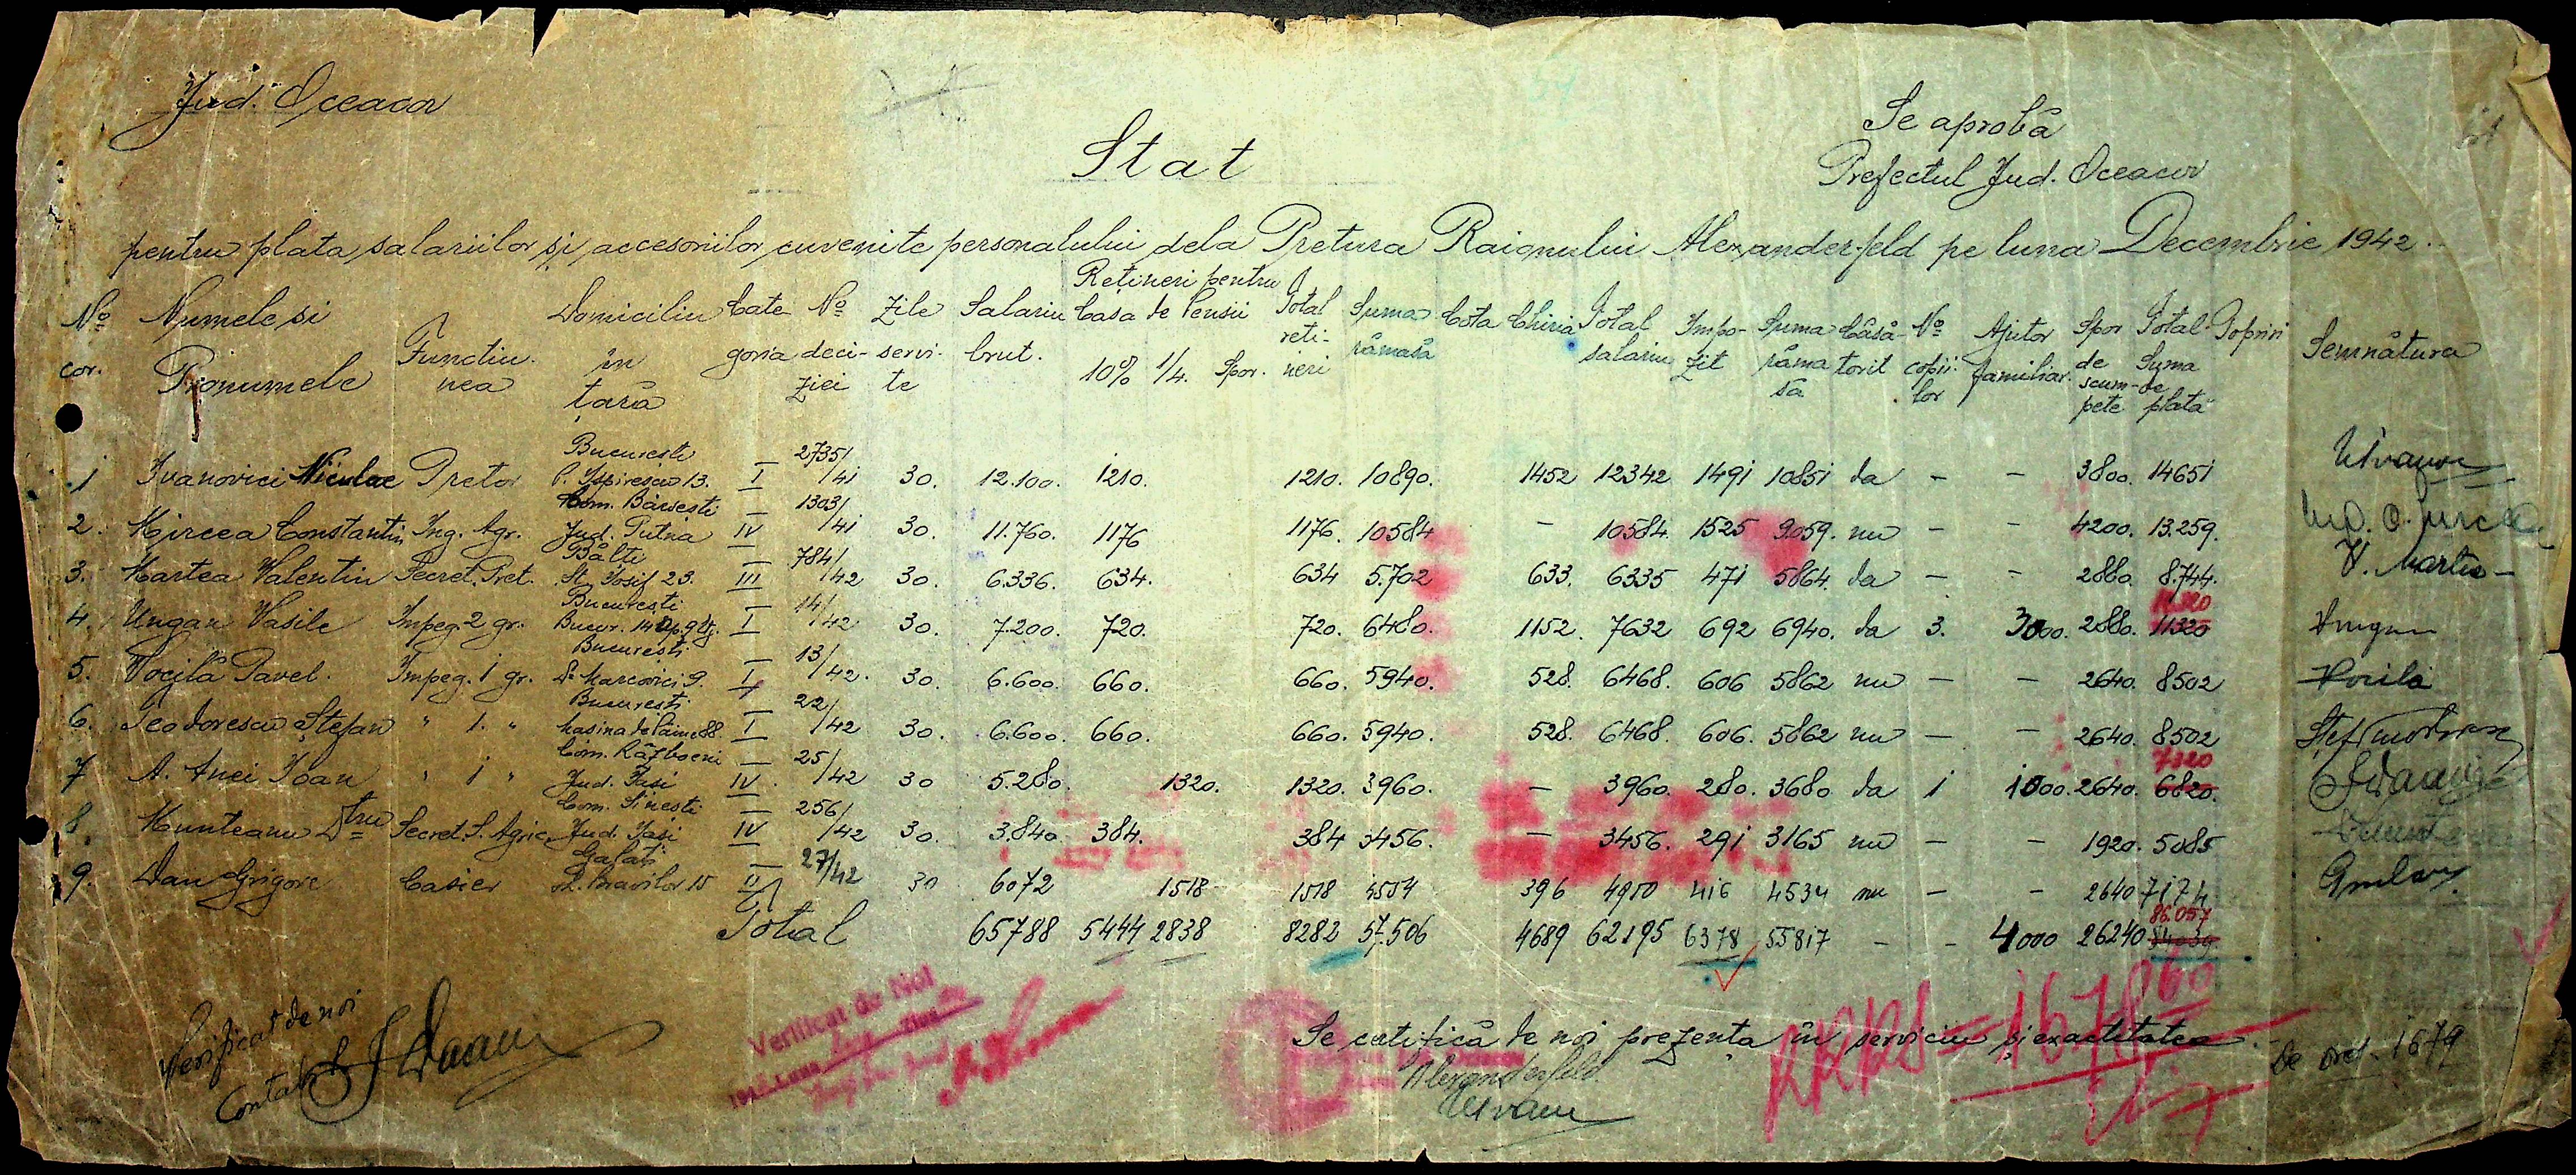 Jud. Oceacov
Se aprobă
Prefectul Jud. Oceacov
Stat
pentru plata salariilor și accesoriilor cuvenite personalului dela Pretura Raionului Alexanderfeld pe luna Decembrie 1942.
No cor. Numele si Pronumele Functiunea Domiciliu în țară Categoria No deciziei Zile servite Salariu brut. Retineri pentru Casa de Pensii 10% 1/4. Spor. Total retineri Suma rămasă Cota Chiria Total salariu Impozit Suma rămasă Căsătorit No copiilor Ajutor familiar. Spor de scumpete Total Suma de plată Popriri Semnătura
1 Ivanovici Niculae Pretor București P. Ispirescu 13. I 2735/41 30. 12.100. 1210. 1210. 10890. 1452 12342 1491 10851 da - - 3800. 14651
2. Mircea Constantin Ing. Agr. Com. Bârsești Jud. Putna IV 1303/41 30. 11.760. 1176 1176. 10584 - 10584. 1525 9059. nu - - 4200. 13.259.
3. Martea Valentin Secret. Pret. Bălți St. Iosif 23. III 784/42 30. 6.336. 634. 634 5.702 633. 6335 471 5864. da - - 2880. 8.744. V. Martea
4. Ungan Vasile Impeg. 2 gr. București Bucur. 14 I 14/42 30. 7.200. 720. 720. 6480. 1152. 7632 692 6940. da 3. 3000. 2880. 11320
5. Vocilă Pavel. Impeg. 1 gr. București Dr Marcovici 9. I 13/42. 30. 6.600. 660. 660. 5940. 528. 6468. 606 5862 nu - - 2640. 8502 Vocila
6. Teodorescu Ștefan " 1. " București Masina de Pâine 88. I 22/42 30. 6.600. 660. 660. 5940. 528. 6468. 606. 5862 nu - - 2640. 8502
7 A. Anei Ioan " 1 " Com. Războeni Jud. Iași IV 25/42 30 5.280. 1320. 1320. 3960. - 3960. 280. 3680 da 1 1000. 2640. 7320 6820.
8. Munteanu Dtru Secret. S. Agric. Com. Sinești Jud. Iași IV 256/42 30. 3.840. 384. 384 3456. - 3456. 291 3165 nu - - 1920. 5085
9. Dan Grigore Casier Galați Str. Bravilor 15 II 27/42 30 6072 1518 1518 4554 396 4950 416 4534 nu - - 2640 7174
Total 65788 5444 2838 8282 57.506 4689 62195 6378 55817 - - 4000 26240 86.057
Verificat de noi
Contabil
Verificat de Noi
Se certifică de noi prezența în serviciu și exactitatea.
Alexanderfeld.
167860
De ord. 1679